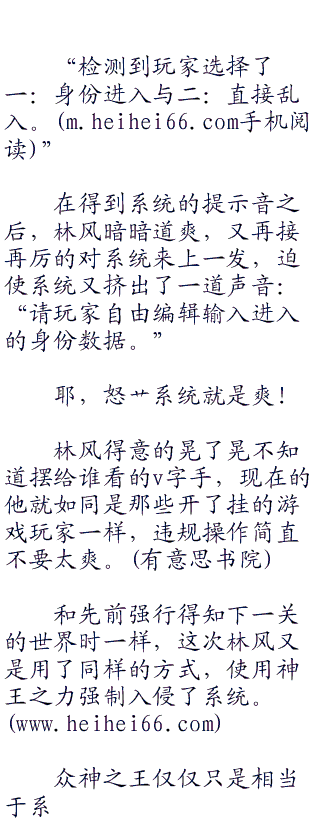 “检测到玩家选择了
一：身份进入与二：直接乱
入。(m.heihei66.com手机阅
读)”
在得到系统的提示音之
后，林风暗暗道爽，又再接
再厉的对系统来上一发，迫
使系统又挤出了一道声音：
“请玩家自由编辑输入进入
的身份数据。”
耶，怒艹系统就是爽！
林风得意的晃了晃不知
道摆给谁看的v字手，现在的
他就如同是那些开了挂的游
戏玩家一样，违规操作简直
不要太爽。(有意思书院)
和先前强行得知下一关
的世界时一样，这次林风又
是用了同样的方式，使用神
王之力强制入侵了系统。
(www.heihei66.com)
众神之王仅仅只是相当
于系